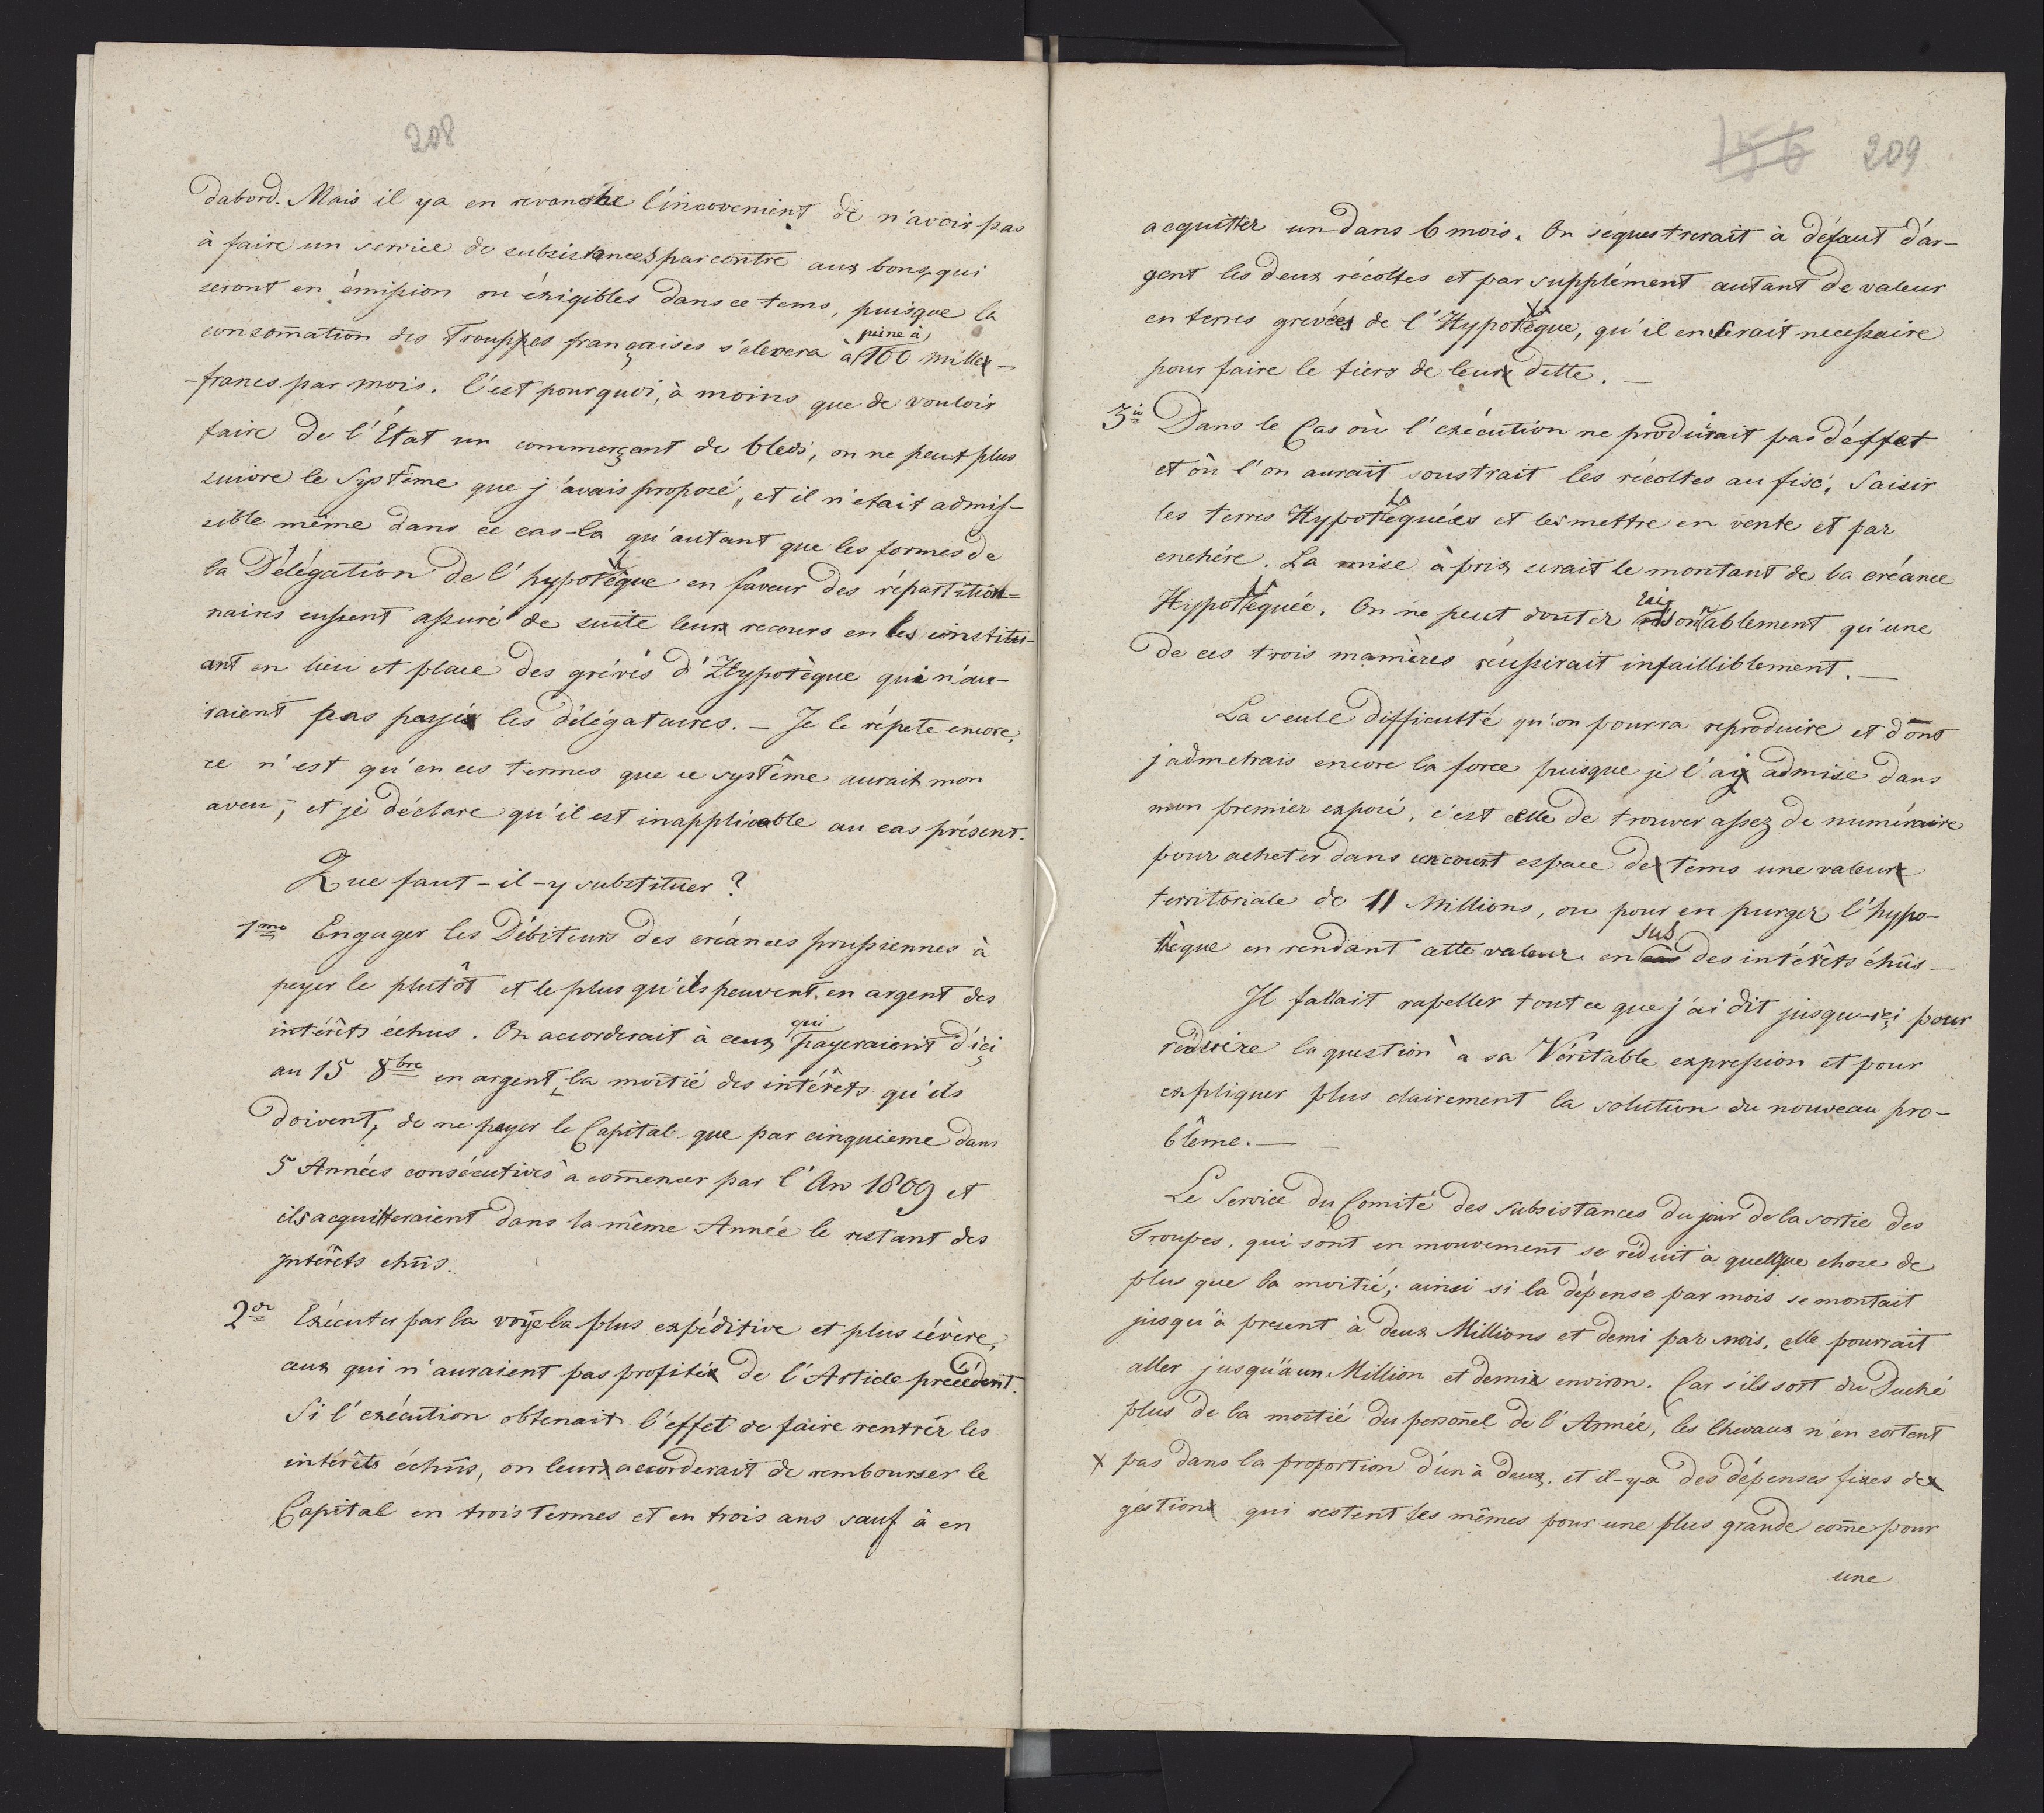 208
Dabord. Mais il ya en révanche l'incovenient de n'avoir pas
à faire un service de subsistances par contre aux bons, qui
seront en émission ou éxigibles dans ce tems, puisque la
consom̄ation des Trouppes françaises s'elevera à peine à 100 mille
francs par mois. C'est pourquoi, à moins que de vouloir
faire de l'État un commerçant de bleds, on ne peut plus
suivre le Système que j'avais proposé, et il n'etait admis-
sible même dans ce cas-la qu'autant que les formes de
la Délégation de l'hypothêque en faveur des répartition=
naires eussent assuré de suite leur recours en les constitu-
ant en lieu et place des grévés d'Hypotèque qui n'au-
raient pas payé les délégataires. — Je le répete encore,
ce n'est qu'en ces termes que ce système aurait mon
aveu, et je déclare qu'il est inapplicable au cas présent.
Que faut-il-y substituer?
1mo Engager les Débiteurs des créances prussiennes à
peyer le plutôt et le plus qu'ils peuvent en argent des
intérêts échus. On accorderait à ceux qui payeraient d'içi
au 15 8bre en argent, la moitié des intérêts qu'ils
doivent, de ne payer le Capital que par cinquieme dans
5 Années consécutives a com̄encer par l'An 1809 et
ils acquitteraient dans la même Année le restant des
Intérêts echûs.
2do Exécuter par la voÿe la plus expéditive et plus sévère,
ceux qui n'auraient pas profité de l'Article précédent.
Si l'exécution obtenait l'effet de faire rentrér les
intérêts échûs, on leur accorderait de rembourser le
Capital en trois termes et en trois ans sauf à en
156 209
acquitter un dans 6 mois. On séquestrerait à défaut d'ar-
gent les deux récoltes et par supplément autant de valeur
en terres grevées de l'Hypothèque, qu'il en serait necessaire
pour faire le tiers de leur dette. —
3io Dans le Cas où l'exécution ne produirait pas d'effet
et où l'on aurait soustrait les récoltes au fisc, Saisir
les terres Hypothequées et les mettre en vente et par
enchére. La mise à prix serait le montant de la créance
Hypothequée. On ne peut douter raisonablement qu'une
de ces trois manières réussirait infailliblement. —
La seule difficulté qu'on pourra reproduire et dont
j'admetrais encore la force puisque je l'ai admise dans
mon premier exposé, c'est celle de trouver assez de numéraire
pour acheter dans un court espace de tems une valeur
territoriale de 11 Millions, ou pour en purger l'hypo-
thèque en rendant cette valeur en sus des intérêts échûs —
Il fallait rapeller tout ce que j'ai dit jusqu-içi pour
réduire la question à sa Véritable expression et pour
expliquer plus clairement la solution du nouveau pro-
blême. —
Le Service du Comité des Subsistances du jour de la sortie des
Troupes, qui sont en mouvement se réduit à quelque chose de
plus que la moitié; ainsi si la dépense par mois se montait
jusqu'à present à deux Millions et demi par mois, elle pourrait
aller jusqu'à un Million et demi environ. Car s'ils sort du Duché
plus de la moitié du person̄el de l'Armée, les Chevaux n'en sortent
pas dans la proportion d'un à deux, et il-y-a des dépenses fixes de
géstion qui restent les mêmes pour une plus grande com̄e pour
une